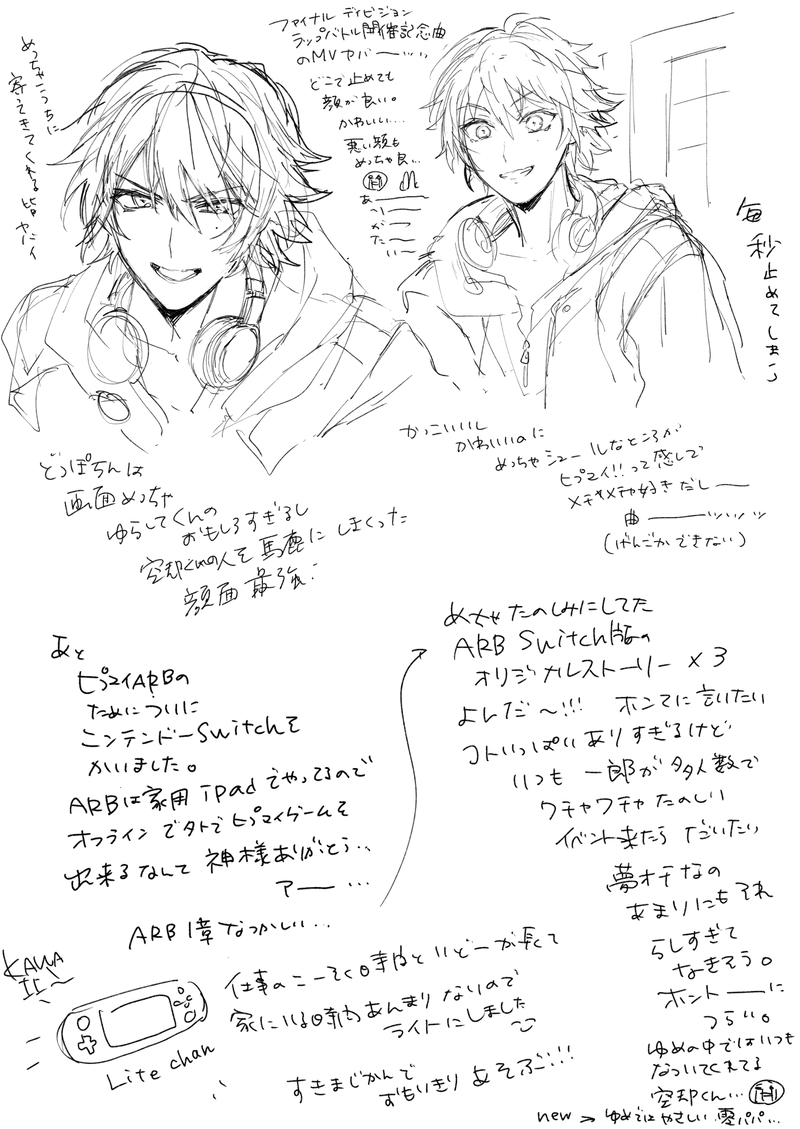 めっちゃこっちに
寄ってきてくれる皆 ヤバイ
ファイナル ディビジョン
ラップバトル開催記念曲
のMVヤバーーッッ
どこで止めても
顔が良い。
かわいい…
悪い顔も
めっちゃ良…
あーー
りーー
がーー
たーー
いーー
毎秒止めてしまう
かっこいいし
かわいいのに
めっちゃシュールなところが
ヒプマイ!!って感じで
メチャメチャ好きだしーー
曲ーーーッッッ
(げんごかできない)
どっぽちんは
画面めっちゃ
ゆらしてくんの
おもしろすぎるし
空却くんの人を馬鹿にしまくった
顔面最強…
あと
ヒプマイARBの
ためについに
ニンテンドーSwitchを
かいました。
ARBは家用ipadでやってるので
オフラインで外でヒプマイゲームを
出来るなんて 神様ありがとう…
アーー…
ARB1章なつかしい…
めちゃたのしみにしてた
ARB Switch版の
オリジナルストーリー×3
よんだ〜!!! ホンマに言いたい
コトいっぱいありすぎるけど
いつも 一郎が多人数で
ワチャワチャたのしい
イベント来たら だいたい
夢オチなの
あまりにもそれ
らしすぎて
なきそう。
ホントーーに
つらい。
ゆめの中ではいつも
なついてくれてる
空却くん…
new → ゆめではやさしい 零パパ…
KAWA
II〜
Lite chan
仕事のこーそく時間といどーが長くて
家にいる時間あんまりないので
ライトにしました
すきまじかんで
おもいきりあそぶ!!!